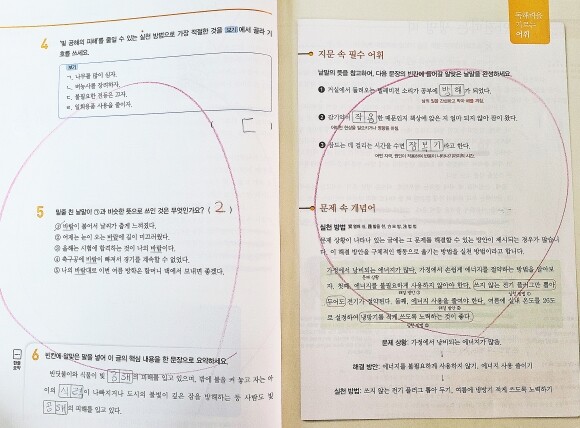 4 '빛 공해의 피해'를 줄일 수 있는 실천 방법으로 가장 적절한 것을 보기에서 골라 기
호를 쓰세요.
보기
ㄱ. 나무를 많이 심자.
ㄴ. 벼농사를 장려하자.
ㄷ. 불필요한 전등은 끄자.
ㄹ. 일회용품 사용을 줄이자.
( ㄷ )
5 밑줄 친 낱말이 ㉠과 비슷한 뜻으로 쓰인 것은 무엇인가요? ( 2 )
① 바람이 불어서 날씨가 춥게 느껴졌다.
② 어제는 눈이 오는 바람에 길이 미끄러웠다.
③ 올해는 시험에 합격하는 것이 나의 바람이다.
④ 축구공에 바람이 빠져서 경기를 계속할 수 없었다.
⑤ 나의 바람대로 이번 여름 방학은 할머니 댁에서 보내면 좋겠다.
6 빈칸에 알맞은 말을 넣어 이 글의 핵심 내용을 한 문장으로 요약하세요.
빈딧불이와 식물이 빛 공해의 피해를 입고 있으며, 밤에 불을 켜 놓고 자는 아
이의 시력이 나빠지거나 도시의 불빛이 깊은 잠을 방해하는 등 사람도 빛
공해의 피해를 입고 있다.
독해력을
키우는
어휘
지문 속 필수 어휘
낱말의 뜻을 참고하여, 다음 문장의 빈칸에 들어갈 알맞은 낱말을 완성하세요.
❶ 거실에서 들려오는 텔레비전 소리가 공부에 방해가 되었다.
남의 일을 간섭하고 막아 해를 끼침.
❷ 감기약이 작용한 때문인지 책상에 앉은 지 얼마 되지 않아 잠이 왔다.
❸ 잠드는 데 걸리는 시간을 수면 잠복기라고 한다.
문제 속 개념어
실천 방법
문제 상황이 나타나 있는 글에는 그 문제를 해결할 수 있는 방안이 제시되는 경우가 많습니
다. 이 해결 방안을 구체적인 행동으로 옮기는 방법을 실천 방법이라고 합니다.
가정에서 낭비되는 에너지가 많다. 가정에서 손쉽게 에너지를 절약하는 방법을 알아보
문제 상황
자. 첫째, 에너지를 불필요하게 사용하지 않아야 한다. 쓰지 않는 전기 플러그만 뽑아
해결 방안 ①
실천 방법 ①
두어도 전기가 절약된다. 둘째, 에너지 사용을 줄여야 한다. 여름에 실내 온도를 26도
해결 방안 ②
로 설정하여 냉방기를 적게 쓰도록 노력하는 것이 좋다.
실천 방법 ②
문제 상황: 가정에서 낭비되는 에너지가 많음.
해결 방안: 에너지를 불필요하게 사용하지 않기, 에너지 사용 줄이기
실천 방법: 쓰지 않는 전기 플러그 뽑아 두기, 여름에 냉방기 적게 쓰도록 노력하기